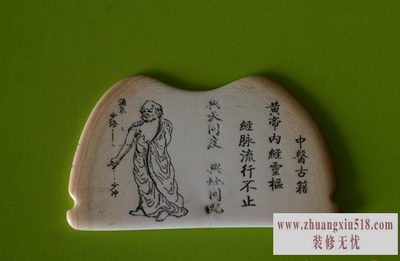 中醫古籍
黃帝內經靈樞
經脈流行不止
與天同度
與地同紀
少海
少沖
www.zhuangxiu518.com
装修无忧